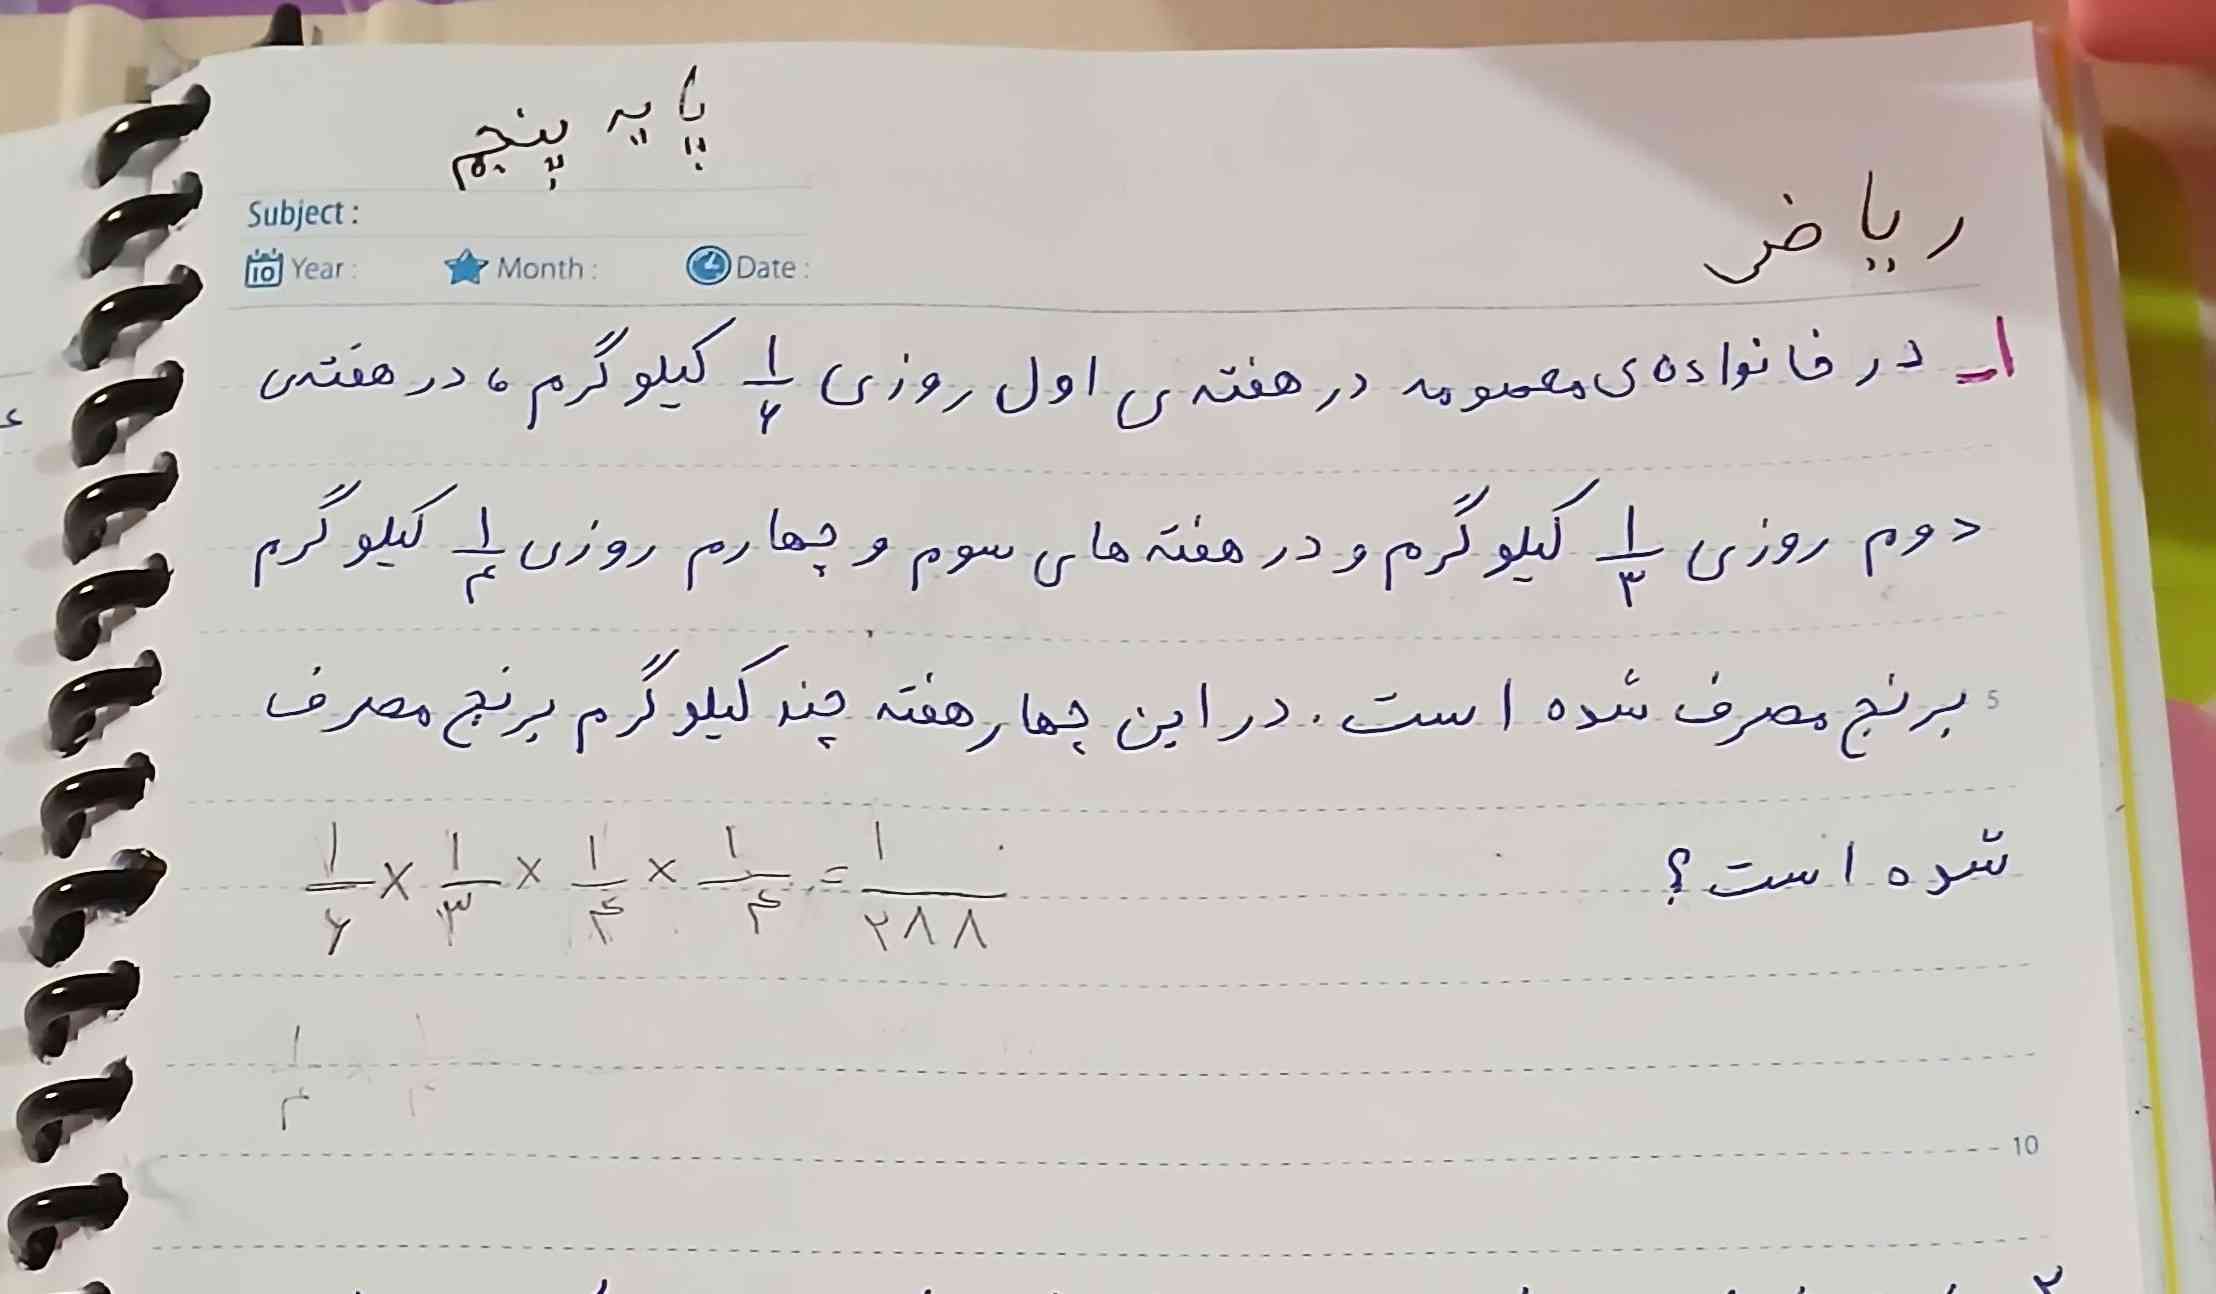 پایه پنجم
ریاض
Subject :
Year : Month : Date :
۱- در خانواده‌ی معصومه در هفته‌ی اول روزی ۱/۶ کیلوگرم، در هفته‌ی
دوم روزی ۱/۳ کیلوگرم و در هفته های سوم و چهارم روزی ۱/۴ کیلوگرم
5 برنج مصرف شده است. در این چهار هفته چند کیلوگرم برنج مصرف
شده است؟
۱/۶ × ۱/۳ × ۱/۴ × ۱/۴ = ۱/۲۸۸
۱/۴
10
۲